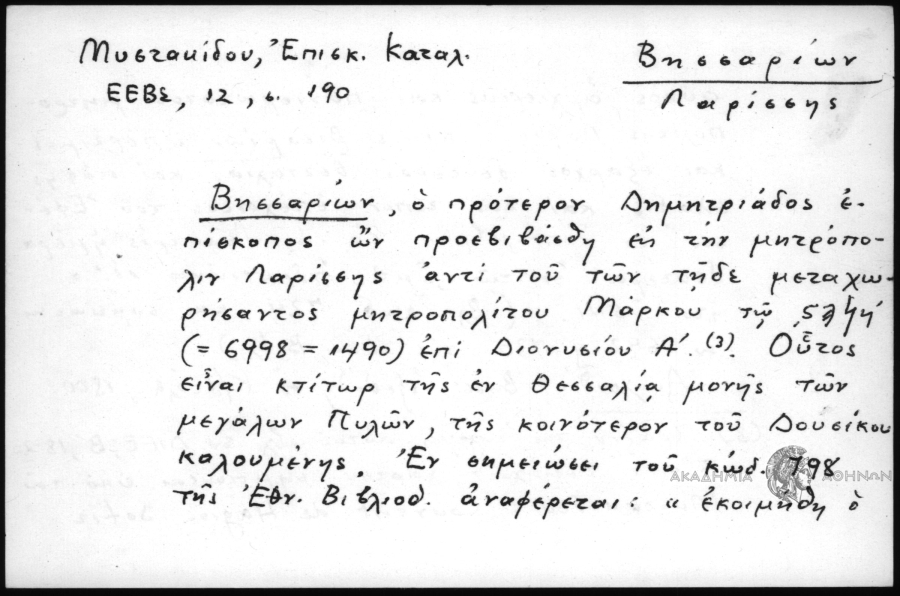 Μυστακίδου, Ἐπισκ. Καταλ.
ΕΕΒΣ, 12, σ. 190
Βησσαρίων
Λαρίσσης
Βησσαρίων, ὁ πρότερον Δημητριάδος ἐ-
πίσκοπος ὢν προεβιβάσθη εἰς τὴν μητρόπο-
λιν Λαρίσσης ἀντὶ τοῦ τῶν τῇδε μεταχω-
ρήσαντος μητροπολίτου Μάρκου τῷ
(= 6998 = 1490) ἐπὶ Διονυσίου Α΄ (3). Οὗτος
εἶναι κτίτωρ τῆς ἐν Θεσσαλίᾳ μονῆς τῶν
μεγάλων Πυλῶν, τῆς κοινότερον τοῦ Δουσίκου
καλουμένης. Ἐν σημειώσει τοῦ κώδ. 798
τῆς Ἐθν. Βιβλιοθ. ἀναφέρεται: « ἐκοιμήθη ὁ
ΑΚΑΔΗΜΙΑ ΑΘΗΝΩΝ